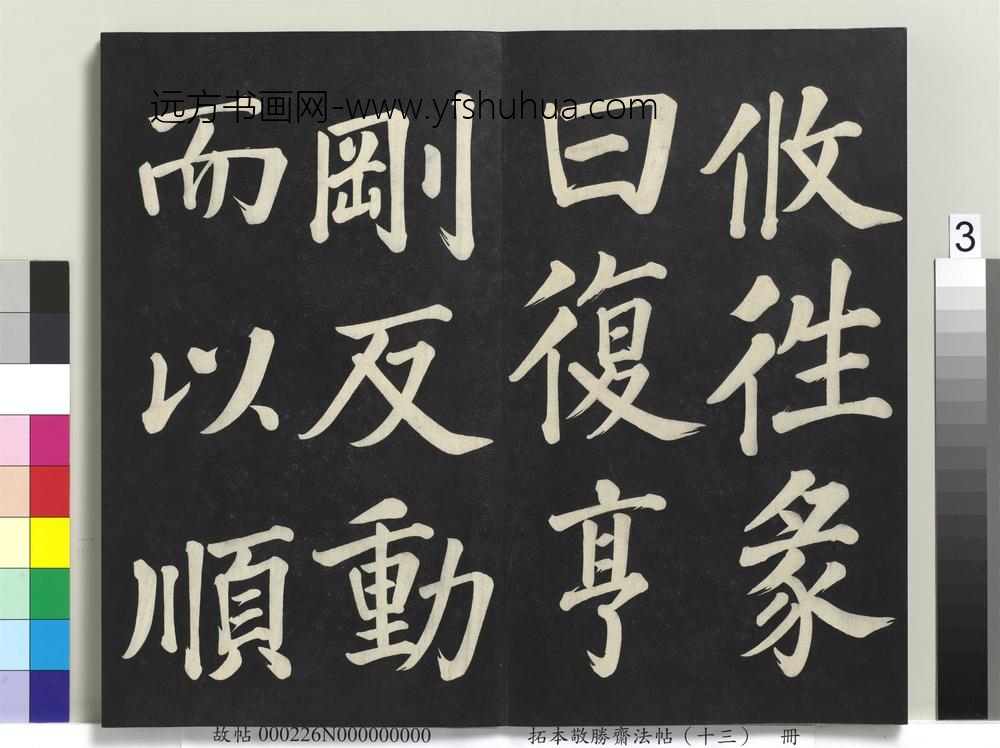 攸徃彖
曰復亨
剛反動
而以順
远方书画网-www.yfshuhua.com
3
故帖 000226N000000000
拓本敬勝齋法帖（十三） 册